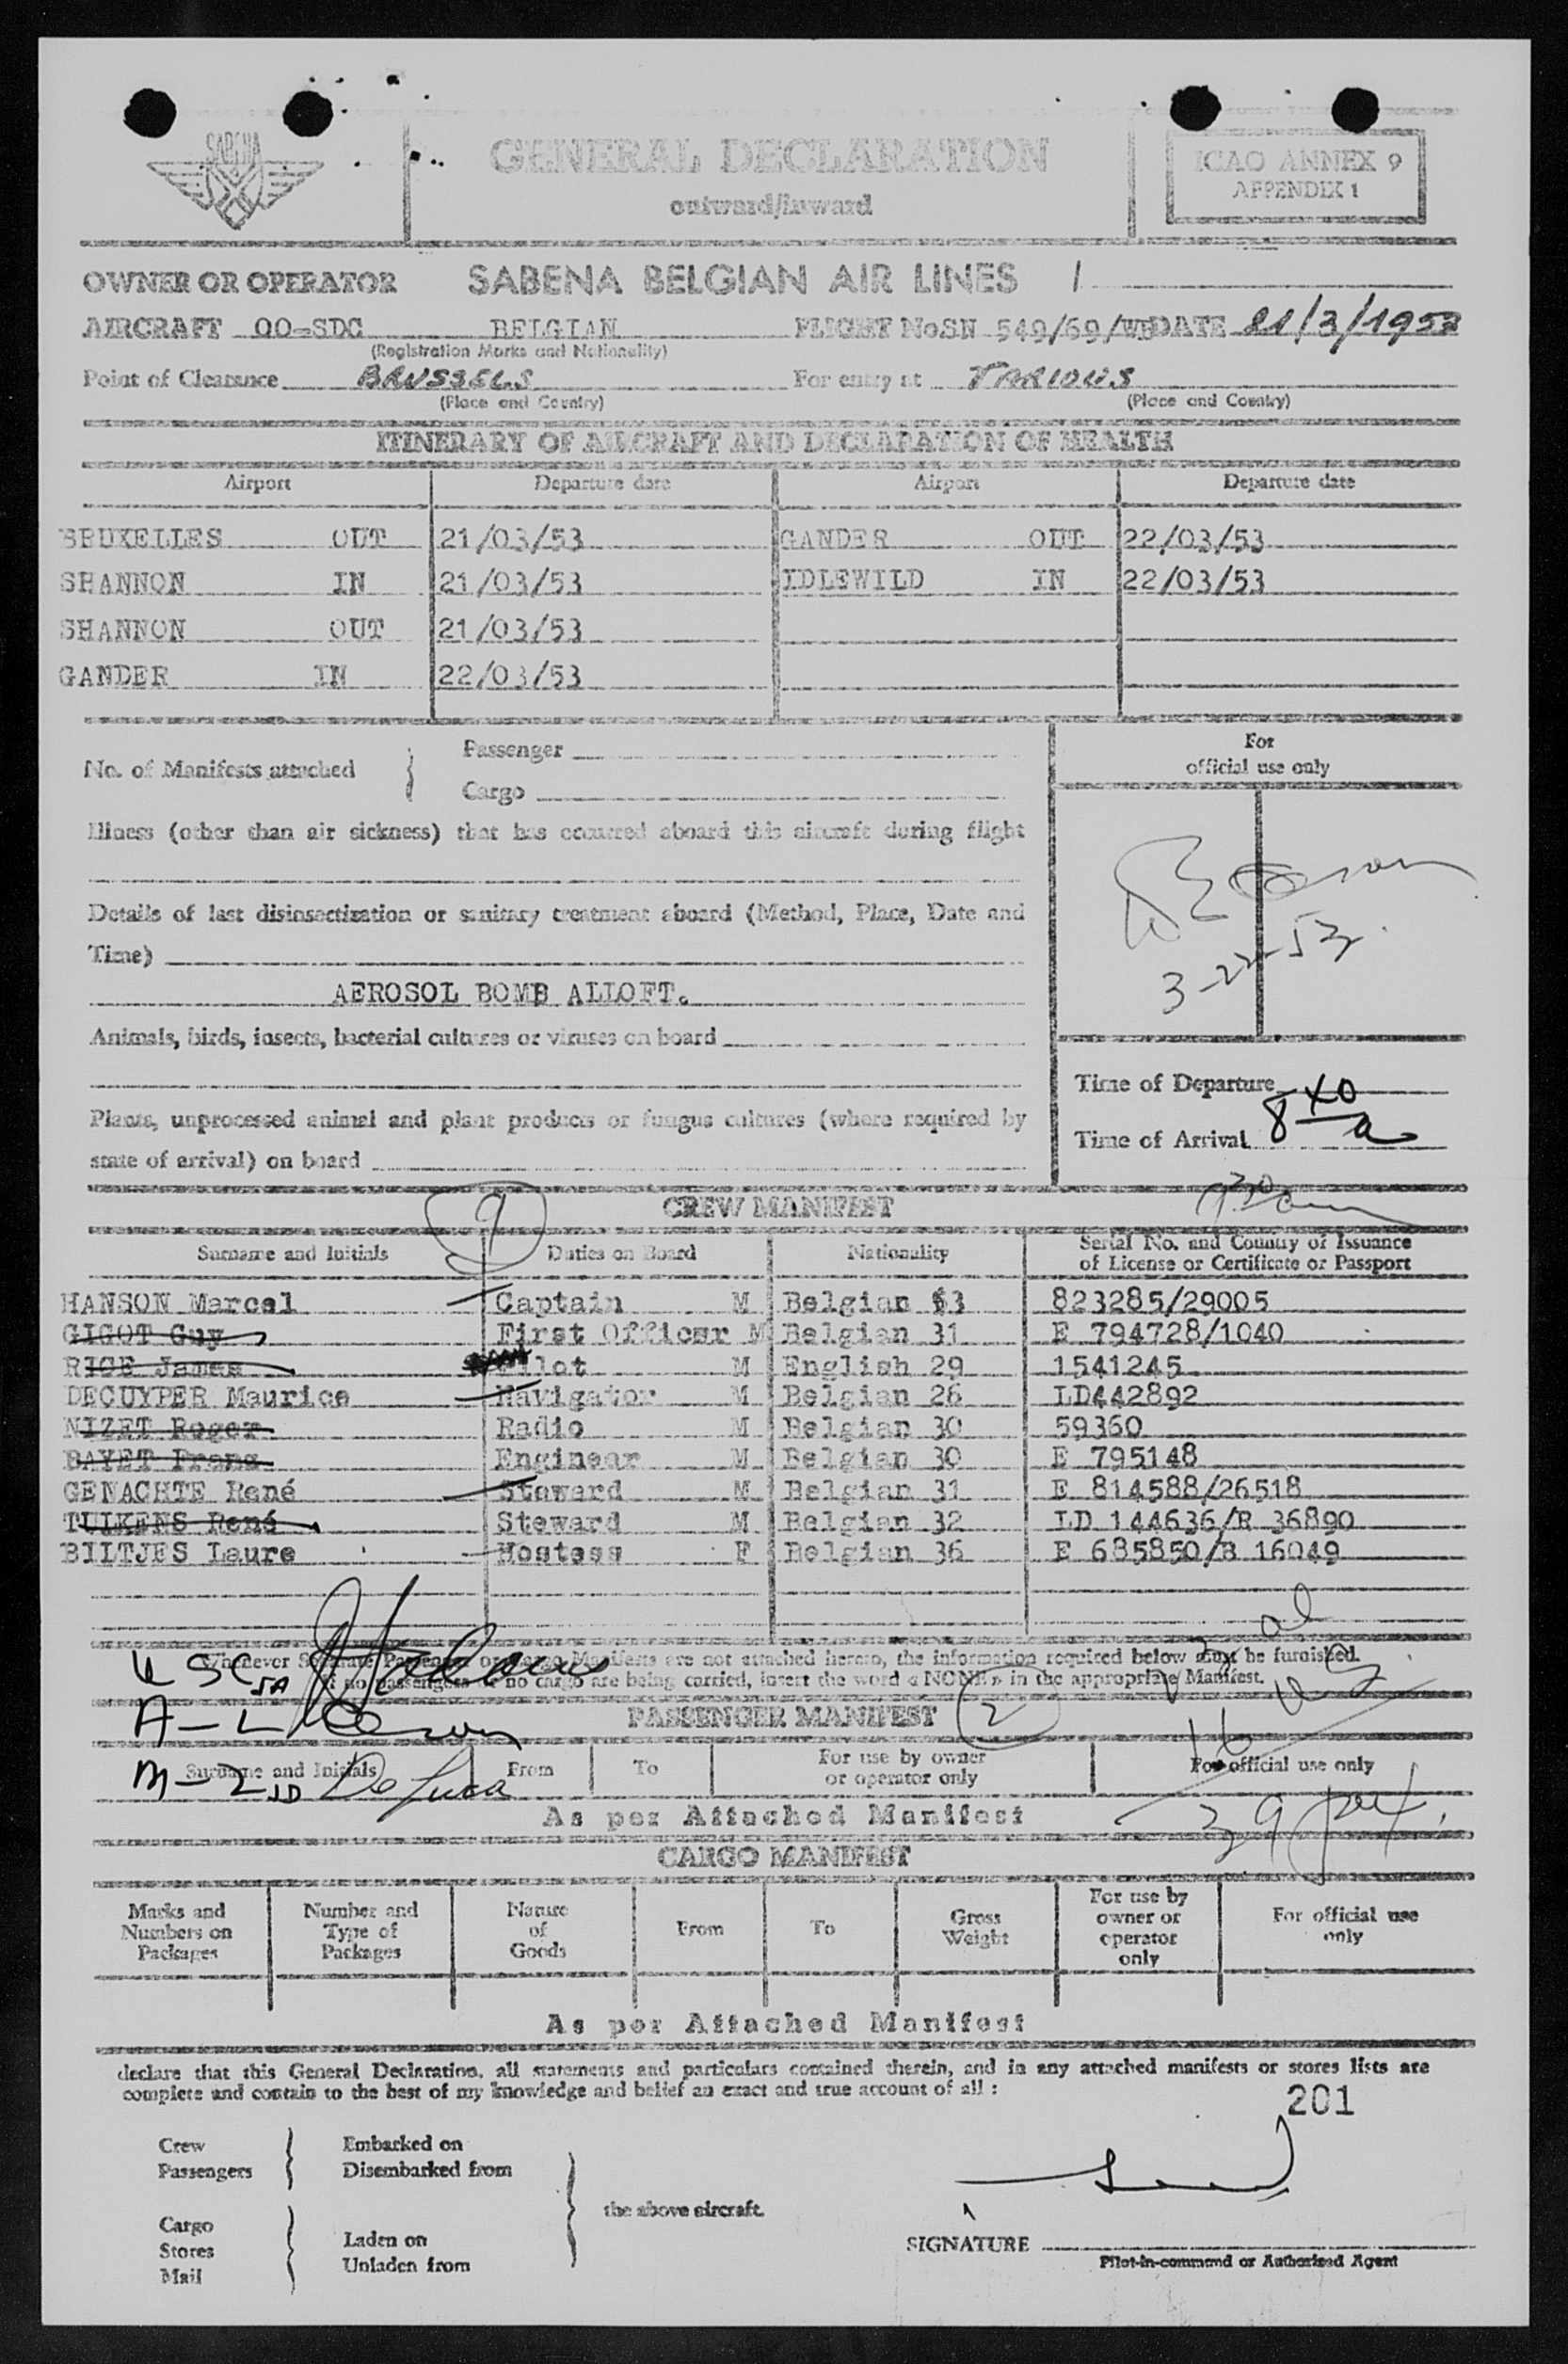 SABENA
GENERAL DECLARATION
outward/inward
ICAO ANNEX 9
APPENDIX 1
OWNER OR OPERATOR SABENA BELGIAN AIR LINES /
AIRCRAFT OO-SDC BELGIAN FLIGHT No SN 549/69/ DATE 21/3/1953
(Registration Marks and Nationality)
Point of Clearance BRUSSELS For entry at VARIOUS
(Place and Country) (Place and Country)
ITINERARY OF AIRCRAFT AND DECLARATION OF HEALTH
Airport Departure date Airport Departure date
BRUXELLES OUT 21/03/53 GANDER OUT 22/03/53
SHANNON IN 21/03/53 IDLEWILD IN 22/03/53
SHANNON OUT 21/03/53
GANDER IN 22/03/53
No. of Manifests attached
Passenger
Cargo
For
official use only
Illness (other than air sickness) that has occurred aboard this aircraft during flight
Details of last disinsectization or sanitary treatment aboard (Method, Place, Date and
Time)
3-22-53
AEROSOL BOMB ALLOFT.
Animals, birds, insects, bacterial cultures or viruses on board
Time of Departure
Plants, unprocessed animal and plant products or fungus cultures (where required by
Time of Arrival 8 40 a
state of arrival) on board
9 30 am
CREW MANIFEST
9
Surname and Initials Duties on Board Nationality Serial No. and Country of Issuance
of License or Certificate or Passport
HANSON Marcel Captain M Belgian 33 823285/29005
GIGOT Guy First Officer M Belgian 31 E 794728/1040
RICE James Pilot M English 29 1541245
DECUYPER Maurice Navigator M Belgian 26 LD442892
NIZET Roger Radio M Belgian 30 59360
BAYET Frans Engineer M Belgian 30 E 795148
GENACHTE René Steward M Belgian 31 E 814588/26518
TULKENS René Steward M Belgian 32 LD 144636/R 36890
BILTJES Laure Hostess F Belgian 36 E 685850/B 16049
Whenever Separate Passenger or Cargo Manifests are not attached hereto, the information required below must be furnished.
If no passengers or no cargo are being carried, insert the word « NONE » in the appropriate Manifest.
USC
A-L
PASSENGER MANIFEST
2
M-2 De Luca
Surname and Initials From To For use by owner
or operator only
For official use only
As per Attached Manifest
39
CARGO MANIFEST
Marks and
Numbers on
Packages
Number and
Type of
Packages
Nature
of
Goods
From
To
Gross
Weight
For use by
owner or
operator
only
For official use
only
As per Attached Manifest
declare that this General Declaration, all statements and particulars contained therein, and in any attached manifests or stores lists are
complete and contain to the best of my knowledge and belief an exact and true account of all :
201
Crew
Passengers
Embarked on
Disembarked from
the above aircraft.
Cargo
Stores
Mail
Laden on
Unladen from
SIGNATURE
Pilot-in-command or Authorized Agent